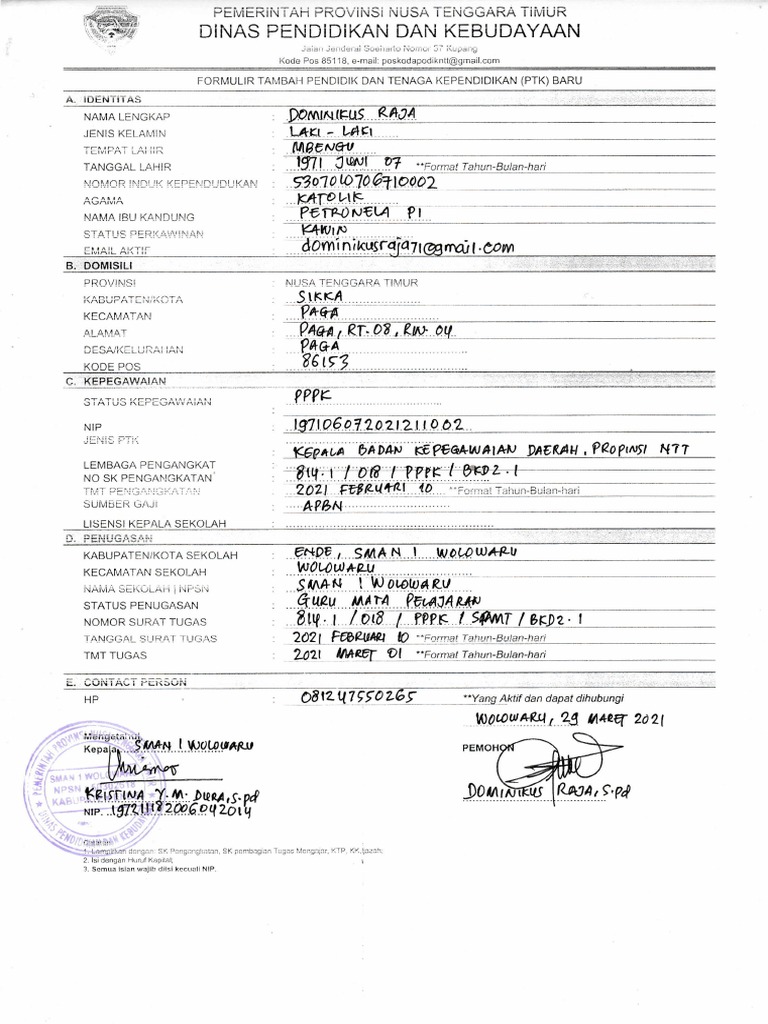 PEMERINTAH PROVINSI NUSA TENGGARA TIMUR
DINAS PENDIDIKAN DAN KEBUDAYAAN
Jalan Jenderal Soeharto Nomor 57 Kupang
Kode Pos 85118, e-mail: poskodapodikntt@gmail.com
FORMULIR TAMBAH PENDIDIK DAN TENAGA KEPENDIDIKAN (PTK) BARU
A. IDENTITAS
NAMA LENGKAP : DOMINIKUS RAJA
JENIS KELAMIN : LAKI - LAKI
TEMPAT LAHIR : MBENGU
TANGGAL LAHIR : 1971 JUNI 07 **Format Tahun-Bulan-hari
NOMOR INDUK KEPENDUDUKAN : 5307040706710002
AGAMA : KATOLIK
NAMA IBU KANDUNG : PETRONELA PI
STATUS PERKAWINAN : KAWIN
EMAIL AKTIF : dominikusraja71@gmail.com
B. DOMISILI
PROVINSI : NUSA TENGGARA TIMUR
KABUPATEN/KOTA : SIKKA
KECAMATAN : PAGA
ALAMAT : PAGA, RT. 08, RW. 04
DESA/KELURAHAN : PAGA
KODE POS : 86153
C. KEPEGAWAIAN
STATUS KEPEGAWAIAN : PPPK
NIP : 197106072021211002
JENIS PTK
LEMBAGA PENGANGKAT : KEPALA BADAN KEPEGAWAIAN DAERAH, PROPINSI NTT
NO SK PENGANGKATAN : 814.1 / 018 / PPPK / BKD2.1
TMT PENGANGKATAN : 2021 FEBRUARI 10 **Format Tahun-Bulan-hari
SUMBER GAJI : APBN
LISENSI KEPALA SEKOLAH :
D. PENUGASAN
KABUPATEN/KOTA SEKOLAH : ENDE, SMAN 1 WOLOWARU
KECAMATAN SEKOLAH : WOLOWARU
NAMA SEKOLAH | NPSN : SMAN 1 WOLOWARU
STATUS PENUGASAN : GURU MATA PELAJARAN
NOMOR SURAT TUGAS : 814.1 / 018 / PPPK / SPMT / BKD2.1
TANGGAL SURAT TUGAS : 2021 FEBRUARI 10 **Format Tahun-Bulan-hari
TMT TUGAS : 2021 MARET 01 **Format Tahun-Bulan-hari
E. CONTACT PERSON
HP : 081247550265 **Yang Aktif dan dapat dihubungi
WOLOWARU, 29 MARET 2021
Mengetahui
Kepala SMAN 1 WOLOWARU
PEMOHON
KRISTINA Y.M. DURA, S.pd
DOMINIKUS RAJA, S.pd
NIP. 197211182006042014
PEMERINTAH PROVINSI
SMAN 1 WOLOWARU
NPSN
KABUPATEN
DINAS PENDIDIKAN DAN KEBUDAYAAN
Catatan:
1. Lampirkan dengan: SK Pengangkatan, SK pembagian Tugas Mengajar, KTP, KK, Ijazah;
2. Isi dengan Huruf Kapital;
3. Semua isian wajib diisi kecuali NIP.